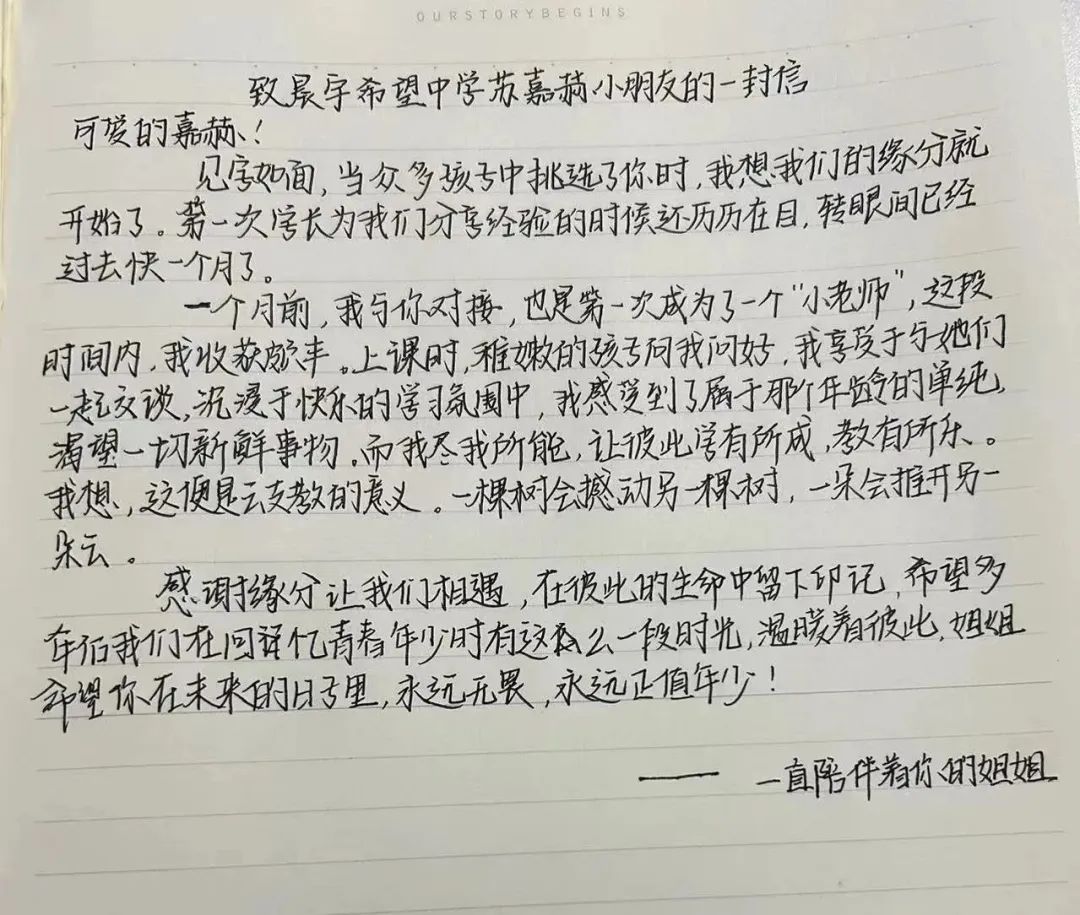 OURSTORYBEGINS
致晨宇希望中学苏嘉赫小朋友的一封信
可爱的嘉赫！
见字如面，当众多孩子中挑选了你时，我想我们的缘分就
开始了。第一次学长为我们分享经验的时候还历历在目，转眼间已经
过去快一个月了。
一个月前，我与你对接，也是第一次成为了一个“小老师”，这段
时间内，我收获颇丰。上课时，稚嫩的孩子向我问好，我享受于与她们
一起交谈，沉浸于快乐的学习氛围中，我感受到了属于那个年龄的单纯，
渴望一切新鲜事物。而我尽我所能，让彼此学有所成，教有所乐。
我想，这便是云支教的意义。一棵树会撼动另一棵树，一朵会推开另一
朵云。
感谢缘分让我们相遇，在彼此的生命中留下印记，希望多
年后我们在回忆青春年少时有这么一段时光，温暖着彼此，姐姐
希望你在未来的日子里，永远无畏，永远正值年少！
—— 一直陪伴着你的姐姐